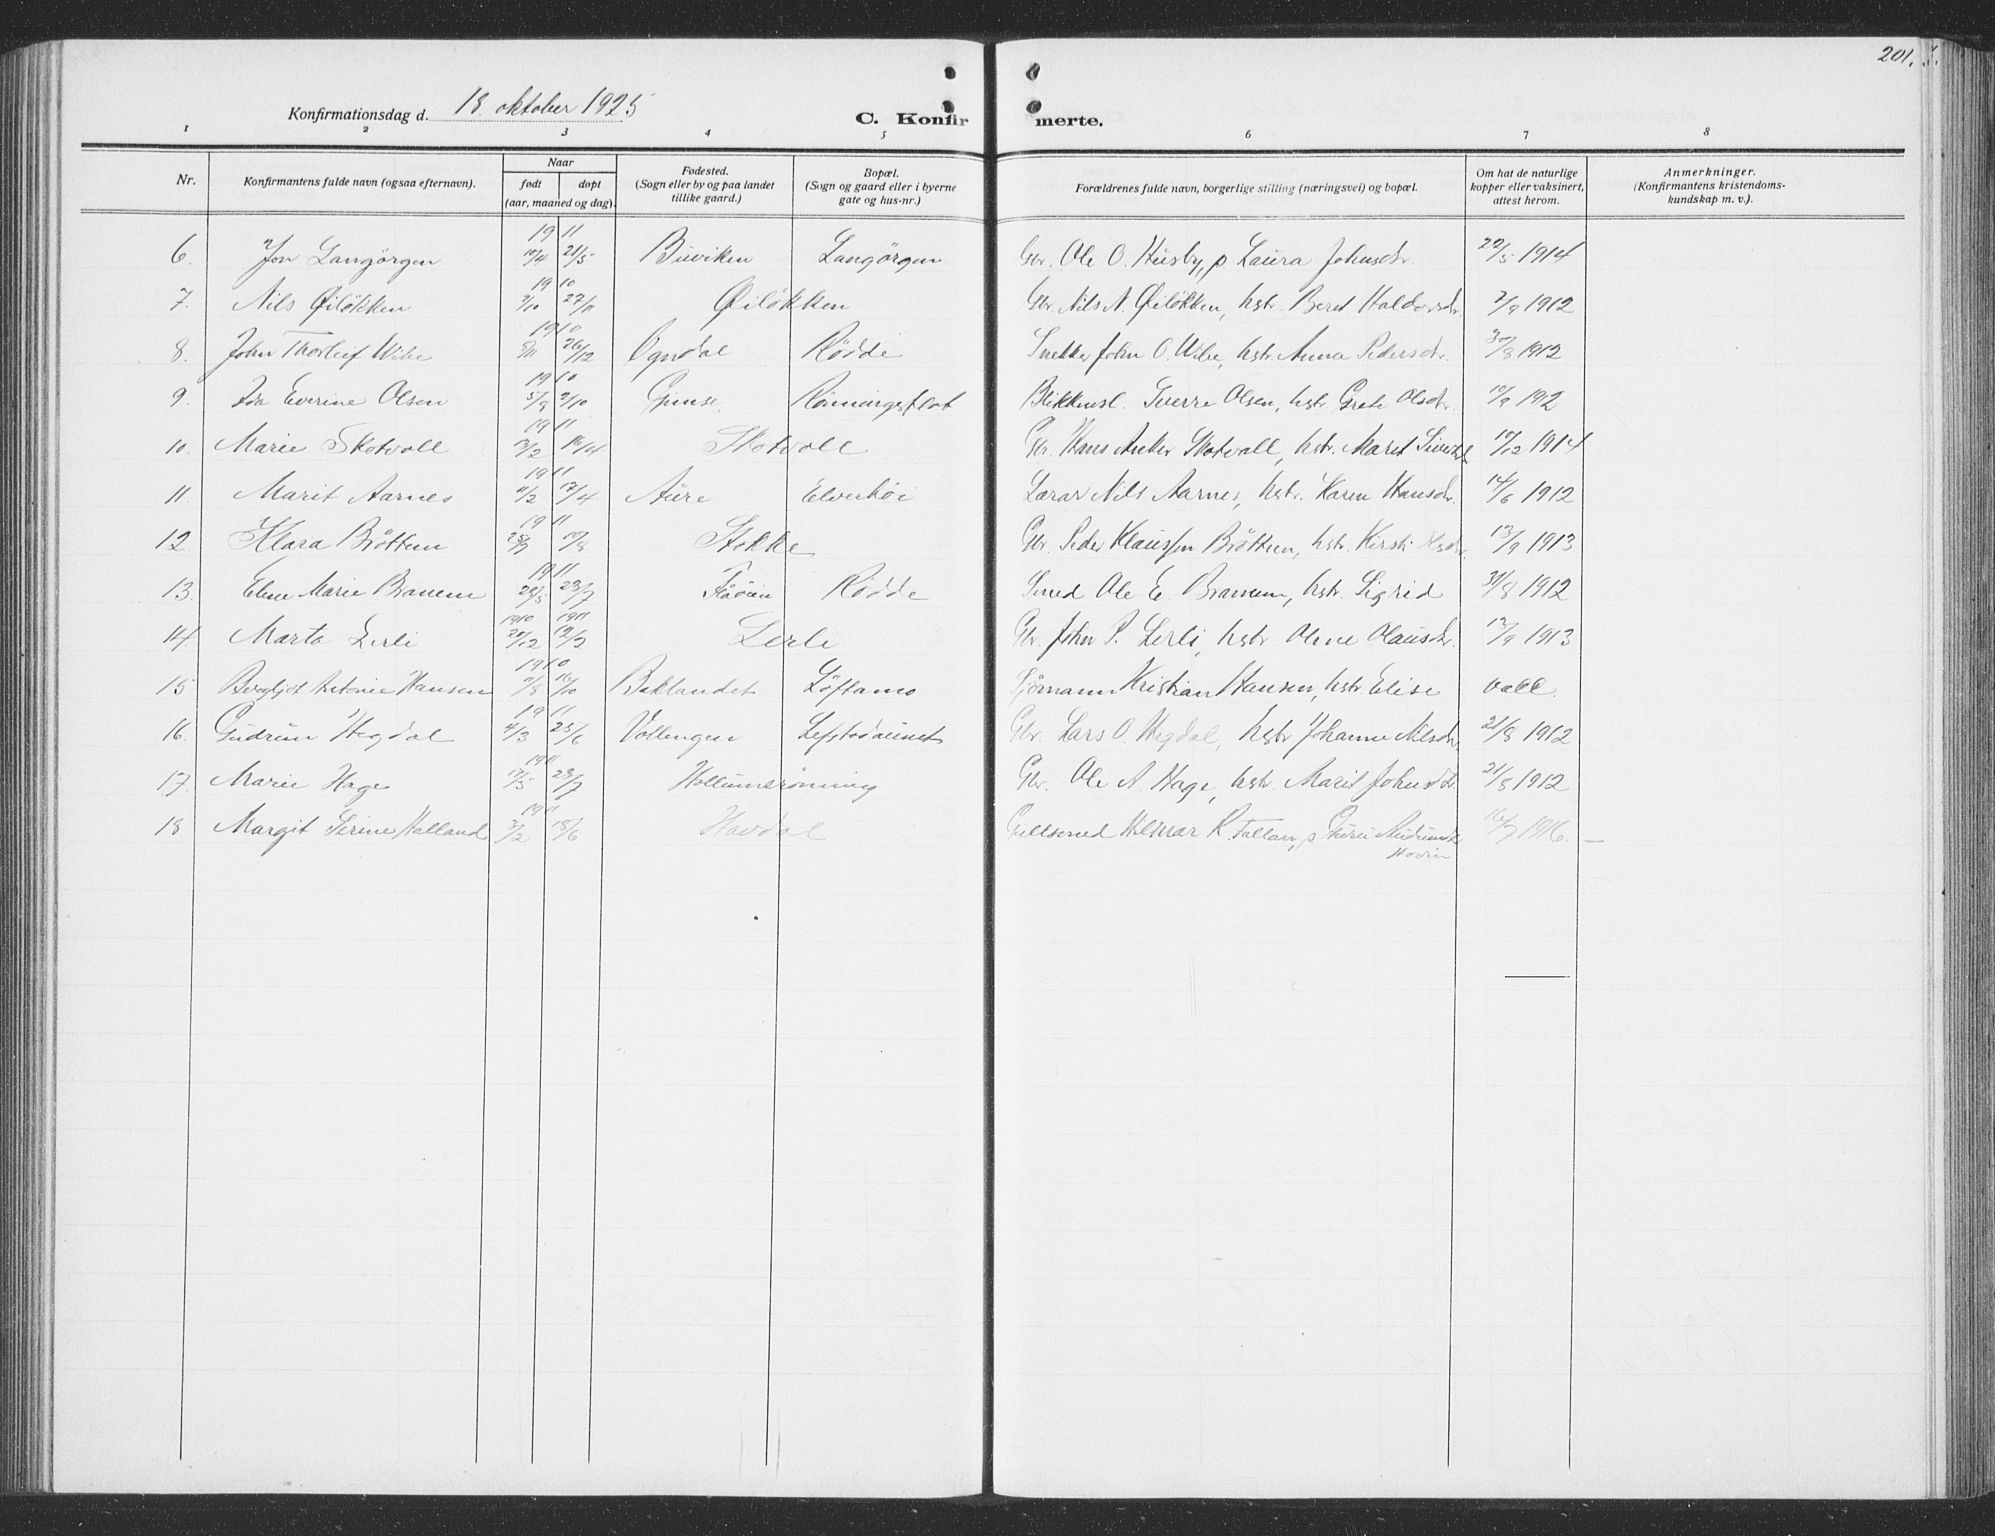 201.
Konfirmationsdag d. 18. oktober 1925
C. Konfirmerte.
1 2 3 4 5 6 7 8
Nr. Konfirmantens fulde navn (ogsaa efternavn). Naar født døpt (aar, maaned og dag). Fødested. (Sogn eller by og paa landet tillike gaard.) Bopæl. (Sogn og gaard eller i byerne gate og hus-nr.) Forældrenes fulde navn, borgerlige stilling (næringsvei) og bopæl. Om hat de naturlige kopper eller vaksinert, attest herom. Anmerkninger. (Konfirmantens kristendomskundskap m. v.).
6. Jon Langørgen 1911 21/5 Buviken Langørgen Gbr. Ole O. Husby, p. Laura Johnsdr. 22/5 1914
7. Nils Øiløkken 1910 27/11 Øiløkken Gbr. Nils N. Øiløkken, hstr. Beret Haldorsdr. 7/9 1912
8. John Thorleif Wibe 1910 5/11 26/12 Ogndal Rødde Snekker John O. Wibe, hstr. Anna Pedersdr. 30/8 1912
9. Ida Everine Olsen 1910 5/9 9/10 Gimse Rønningsflot Blikkensl. Sverre Olsen, hstr. Grete Olsdr. 10/9 1912
10. Marie Skotvoll 1911 16/4 Skotvoll Gbr. Hans Anker Skotvall, hstr. Marit 10/12 1914
11. Marit Aarnes 1911 17/4 Aure Elverhøi Lærar Nils Aarnes, hstr. Karen Hansdr. 14/6 1912
12 Klara Brøttem 1911 Stokke Gbr. Peder Klaussen Brøttem, hstr. Kirsti 13/9 1913
13. Eline Marie Branem 1911 28/5 23/7 Flåøien Rødde Smed Ole E. Bramem, hstr. Sigrid 31/8 1912
14. Marta Lerli 1910 1911 21/12 12/2 Lerli Gbr. John P. Lerli, hstr. Oline Olausdr. 13/9 1913
15 Bergljot Antonie Hansen 1910 11/8 16/10 Baklandet Løftamo Sjømann Kristian Hansen, hstr. Elise vacc.
16. Gudrun Hegdal 1911 4/3 25/6 Vollengen Gbr. Lars O. Hegdal, hstr Johanne Nilsdr. 21/8 1912
17. Marie Hage 1911 17/5 23/7 Hollumsrønning Gbr. Ole A. Hage, hstr. Marit Johnsdr. 21/8 1912
18 Margit Serine Halland 1911 3/2 18/6 Havdal Gullsmed Hilmar R. Tallan, p. 16/7 1916.